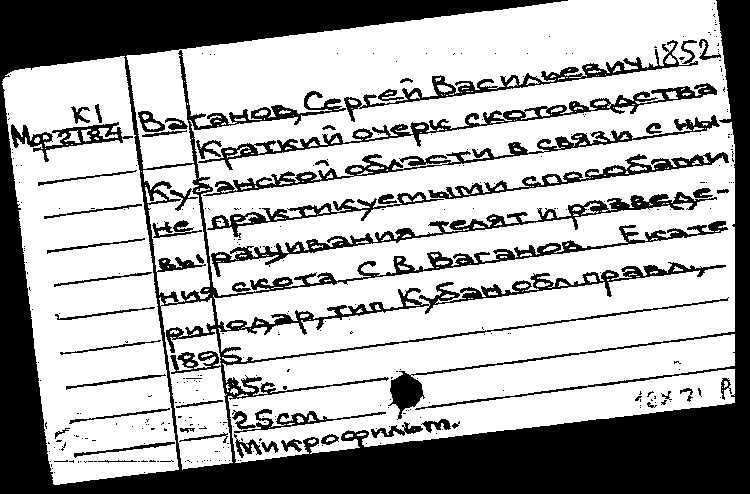 К1
Мф 2184
Ваганов, Сергей Васильевич. 1852
Краткий очерк скотоводства
Кубанской области в связи с ны-
не практикуемыми способами
выращивания телят и разведе-
ния скота. С.В. Ваганов. Екате-
ринодар, тип. Кубан. обл. правл.,
1895.
85с.
25cm.
Микрофильм.